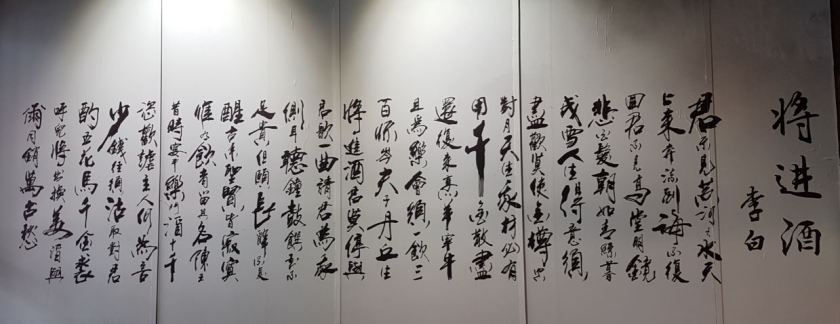 将进酒
李白
君不見黃河之水天
上來奔流到海不復
回君不見高堂明鏡
悲白髮朝如青絲暮
成雪人生得意須
盡歡莫使金樽空
對月天生我材必有
用千金散盡
還復來烹羊宰牛
且為樂會須一飲三
百杯岑夫子丹丘生
將進酒君莫停與
君歌一曲請君為我
側耳聽鐘鼓饌玉不
足貴但願長醉不
醒古來聖賢皆寂寞
惟有飲者留其名陳王
昔時宴平樂斗酒十千
恣歡謔主人何為言
少錢徑須沽取對君
酌五花馬千金裘
呼兒將出換美酒與
爾同銷萬古愁